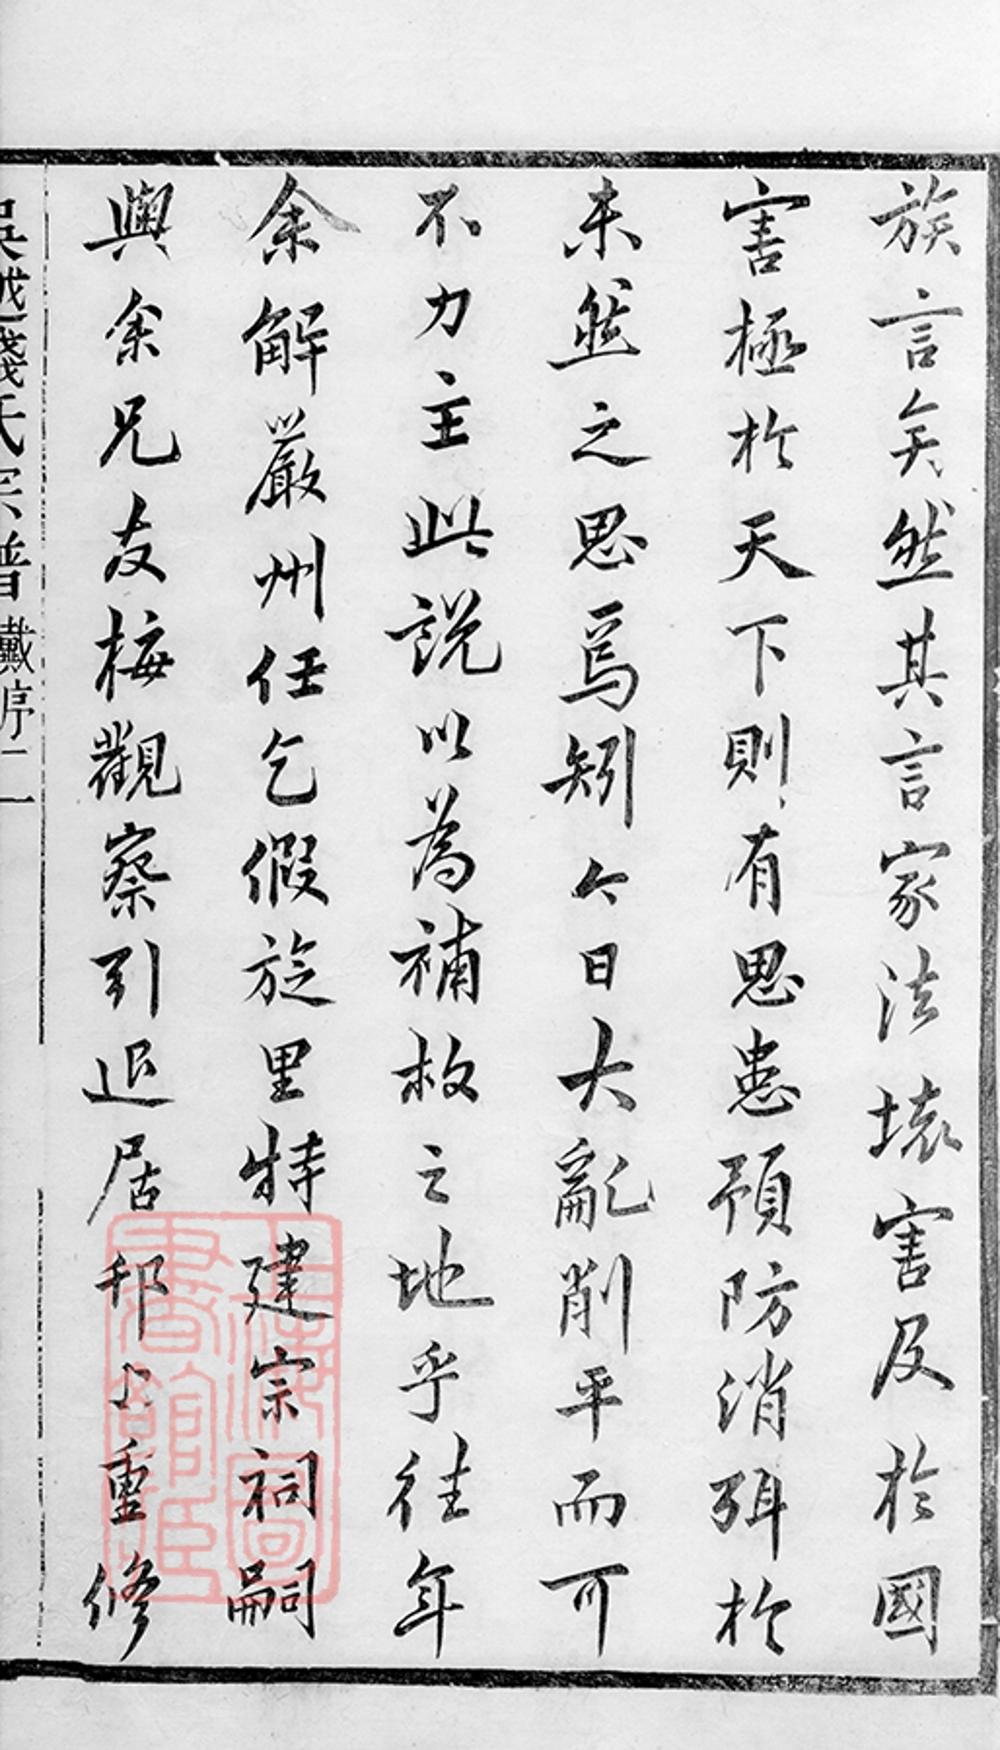 族言矣然其言家法壊害及於國
害極於天下則有思患預防消弭於
未然之思焉矧今日大亂削平而可
不力主此説以為補救之地乎往年
余解嚴州任乞假旋里特建宗祠嗣
與余兄友梅觀察引退居邗上重修
吳越錢氏宗譜 戴序 二
上海圖書館藏